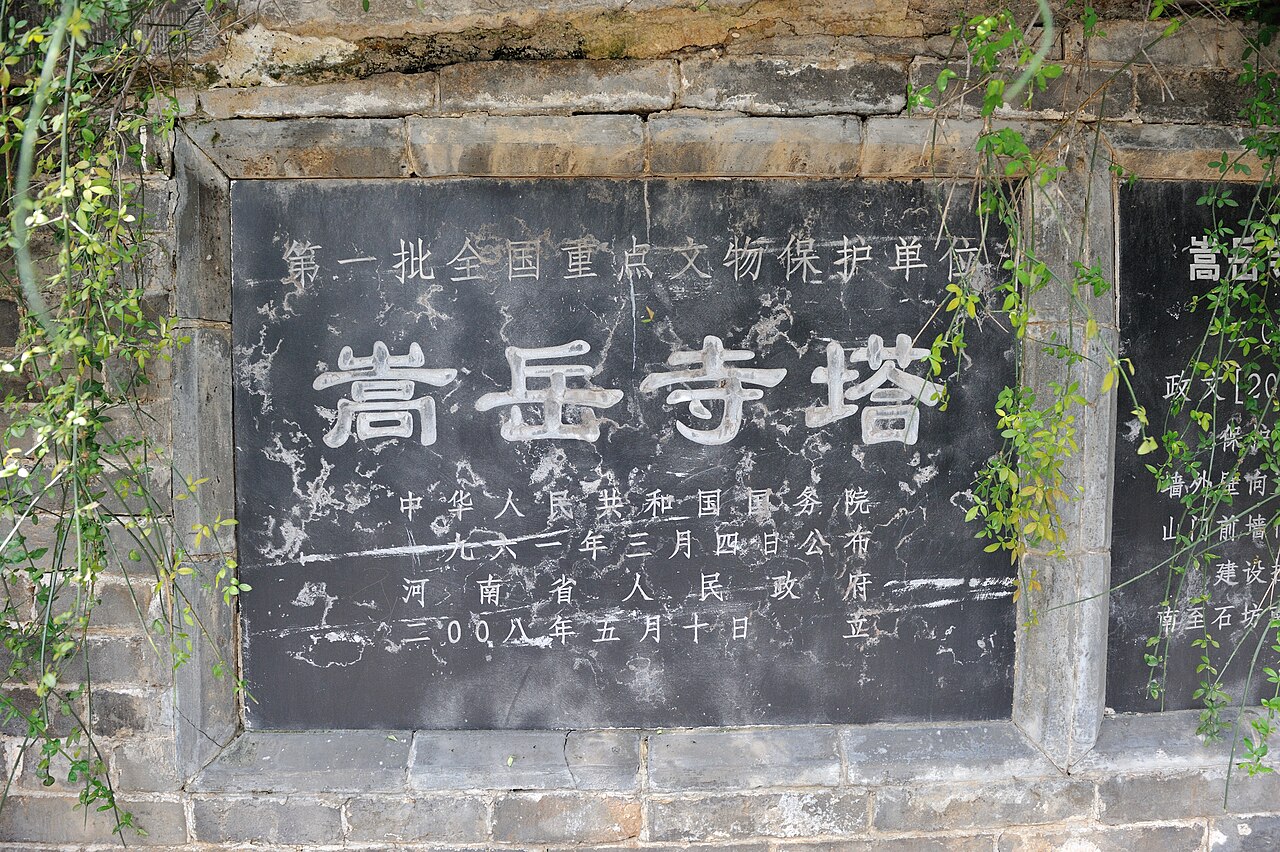 第一批全国重点文物保护单位
嵩岳寺塔
中华人民共和国国务院
一九六一年三月四日公布
河南省人民政府
二00八年五月十日 立
嵩岳寺
政文[20
保护
墙外垂向
山门前墙
建设
南至石坊